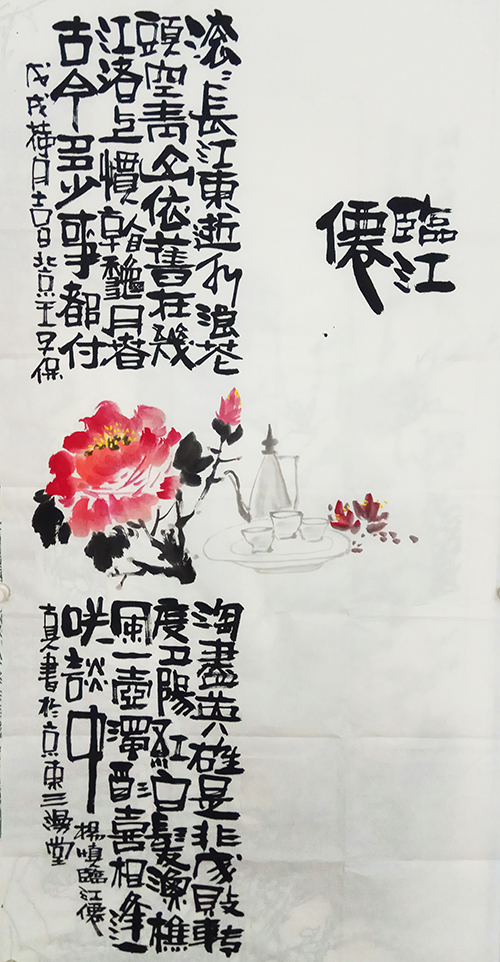 臨江
僊
滾〻長江東逝水浪花
淘盡英雄是非成敗轉
頭空青山依舊在幾
度夕陽紅白髮漁樵
江渚上慣看龝月春
風一壺濁酒喜相逢
古今多少事都付
咲談中
楊慎臨江僊
戊戌荷月吉日北京王早保
真書於京東三漫堂